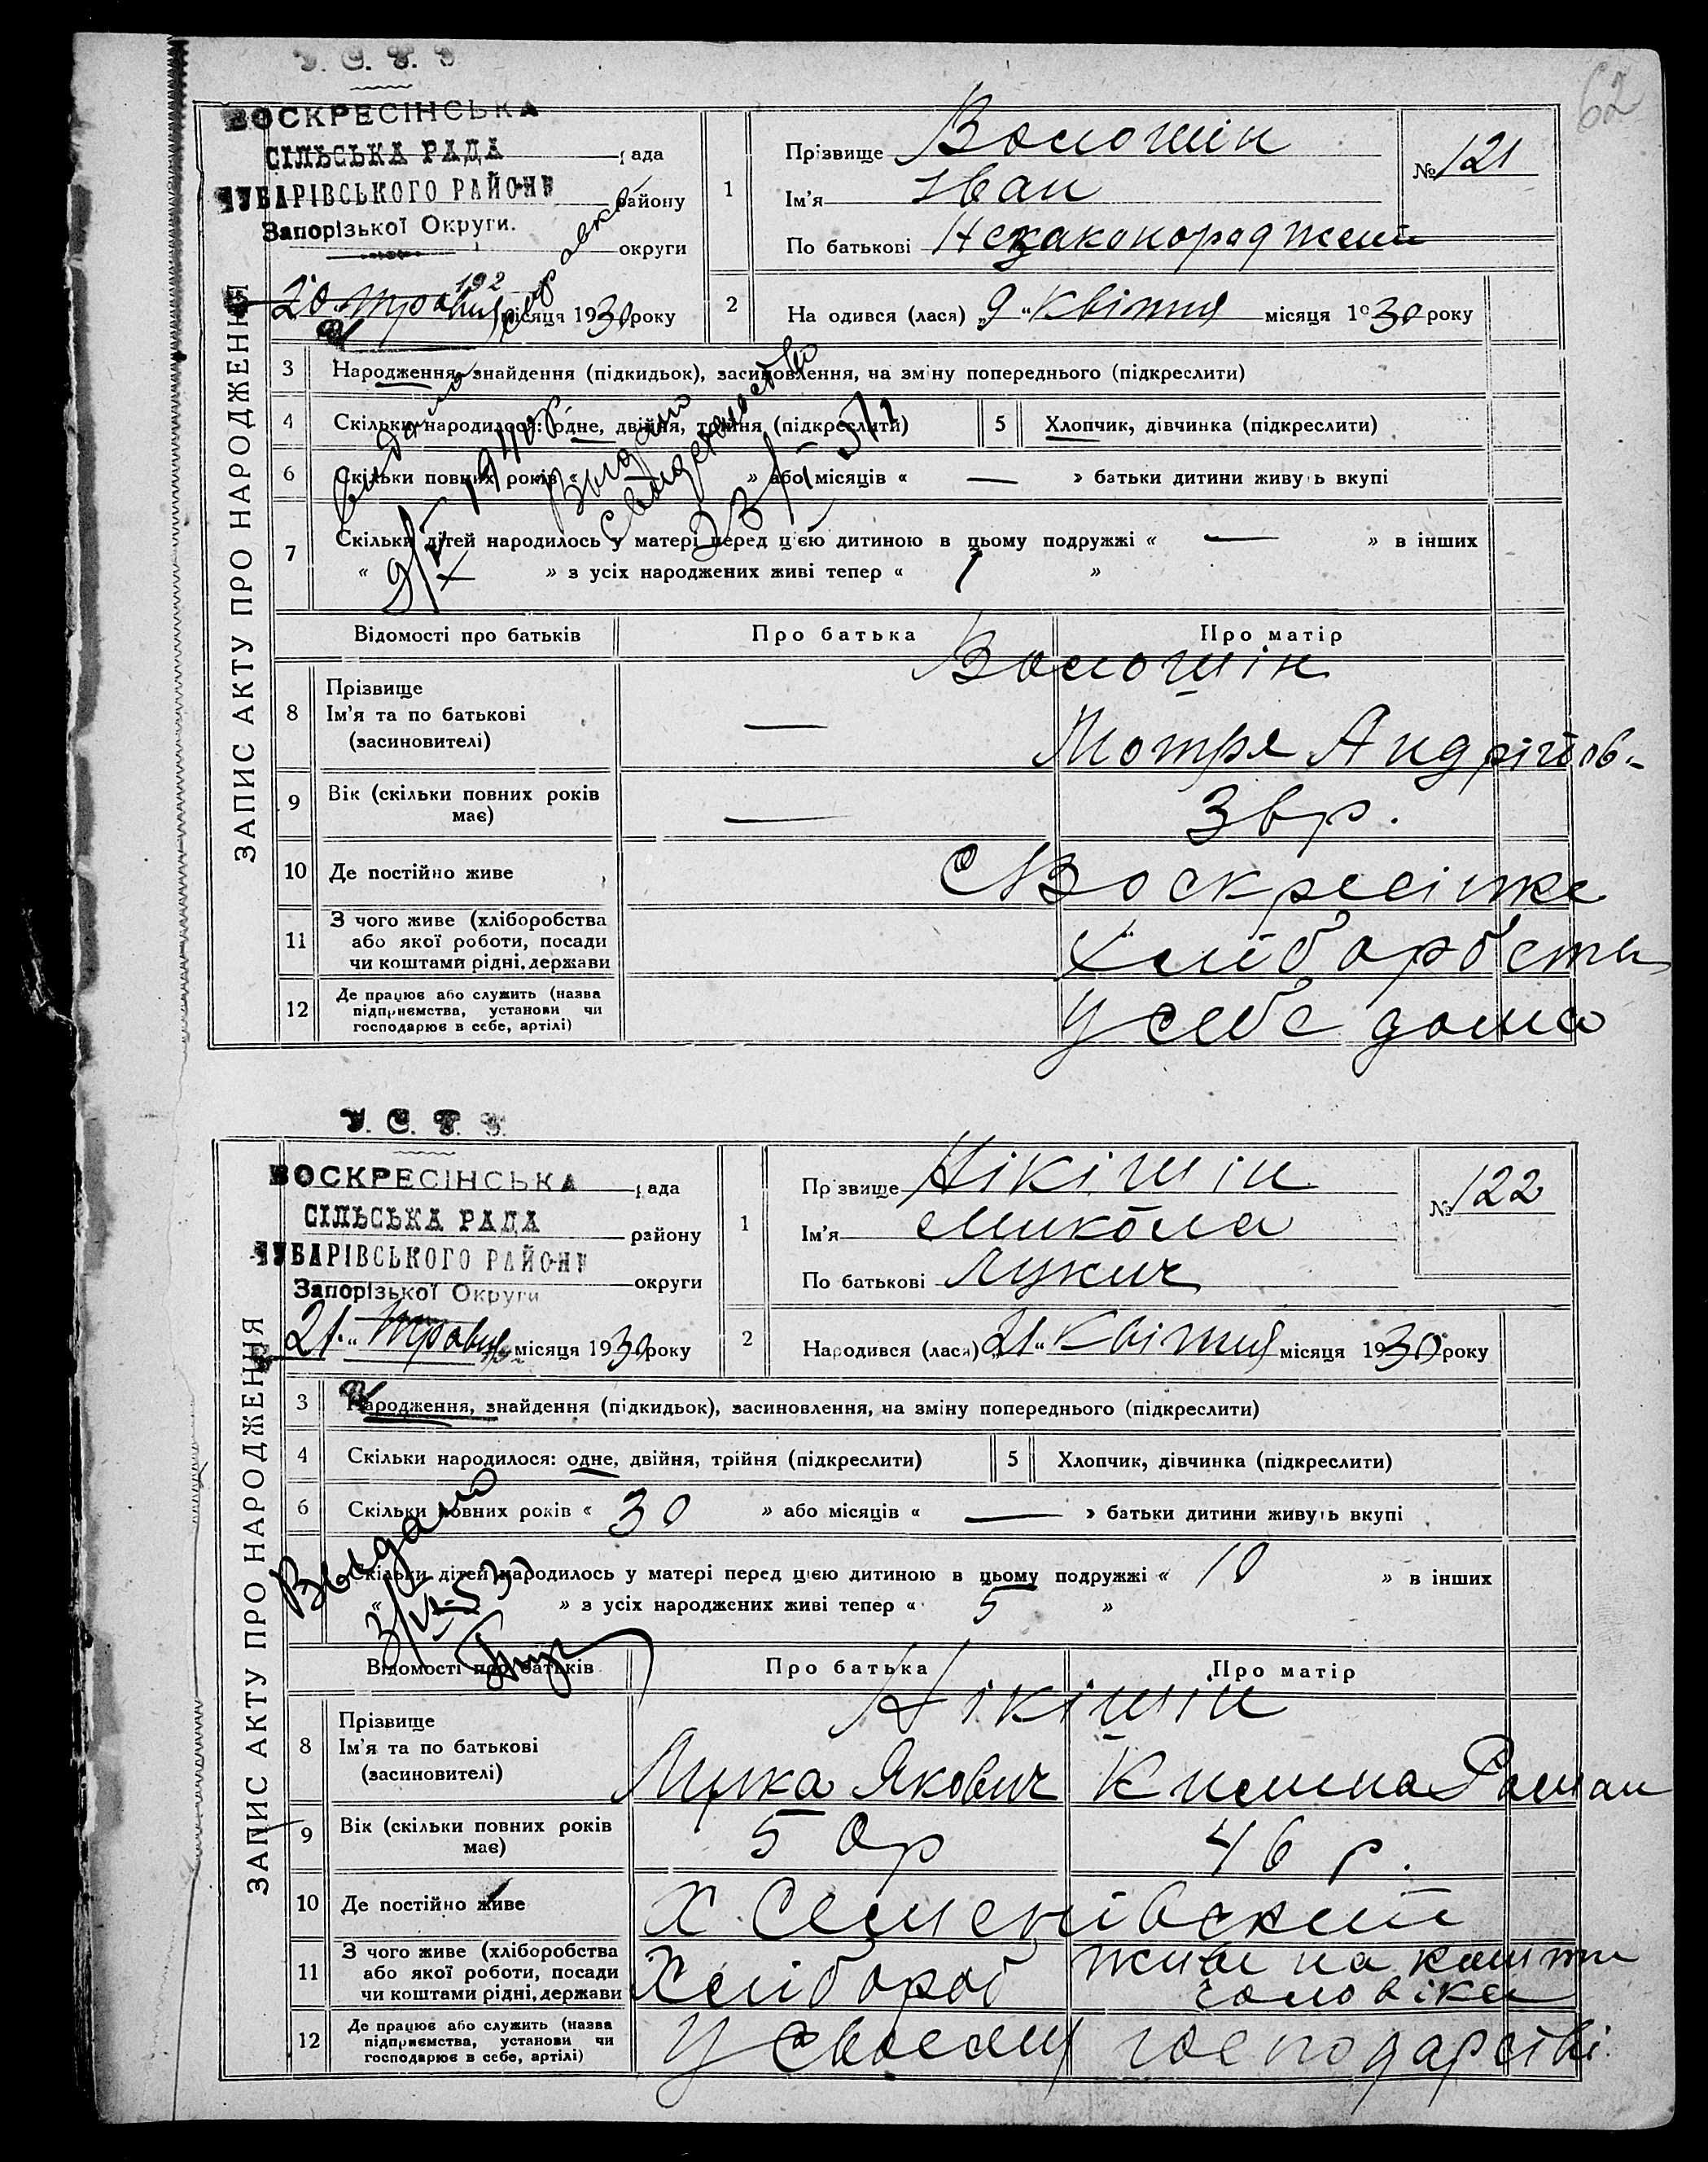 62
У. С. Р. Р.
ВОСКРЕСІНСЬКА
СІЛЬСЬКА РАДА рада
ЧУБАРІВСЬКОГО РАЙОНУ району
Запорізької Округи. округи
20 травня місяця 1930 року
ЗАПИС АКТУ ПРО НАРОДЖЕННЯ
1 Прізвище Волошин
Ім'я Іван
По батькові Незаконораджений
№ 121
2 Народився (лася) „9“ Квітня місяця 1930 року
3 Народження, знайдення (підкидьок), засиновлення, на зміну попереднього (підкреслити)
4 Скільки народилося: одне, двійня, трійня (підкреслити) 5 Хлопчик, дівчинка (підкреслити)
6 Скільки повних років « » або місяців « — » батьки дитини живуть вкупі
7 Скільки дітей народилось у матері перед цією дитиною в цьому подружжі « — » в інших
« » з усіх народжених живі тепер « 1 »
Видано справка
9/X 1940 р.
Выдано
свидетельство
Відомості про батьків Про батька Про матір
Волошін
8 Прізвище
Ім'я та по батькові — Мотря Андрійов-
(засиновителі)
9 Вік (скільки повних років має) — 3вр.
10 Де постійно живе с Воскресінке
11 З чого живе (хліборобства
або якої роботи, посади
чи коштами рідні, держави Хліборобств
12 Де працює або служить (назва
підприємства, установи чи
господарює в себе, артілі) У себе дома
У. С. Р. Р.
ВОСКРЕСІНСЬКА рада
СІЛЬСЬКА РАДА
ЧУБАРІВСЬКОГО РАЙОНУ району
Запорізької Округи округи
21 травня місяця 1930 року
ЗАПИС АКТУ ПРО НАРОДЖЕННЯ
1 Прізвище Нікішин
Ім'я Микола
По батькові Лукич
№ 122
2 Народився (лася) „21“ Квітня місяця 1930 року
3 Народження, знайдення (підкидьок), засиновлення, на зміну попереднього (підкреслити)
4 Скільки народилося: одне, двійня, трійня (підкреслити) 5 Хлопчик, дівчинка (підкреслити)
6 Скільки повних років « 30 » або місяців « — » батьки дитини живуть вкупі
Скільки дітей народилось у матері перед цією дитиною в цьому подружжі « 10 » в інших
« » з усіх народжених живі тепер « 5 »
Выдано
3/VI-53
Відомості про батьків Про батька Про матір
Нікішин
8 Прізвище
Ім'я та по батькові Лука Якович Килина Роман
(засиновителі)
9 Вік (скільки повних років має) 50р 46 р.
10 Де постійно живе Х. Семенівський
11 З чого живе (хліборобства
або якої роботи, посади
чи коштами рідні, держави Хлібороб живе на кошти чоловіка
12 Де працює або служить (назва
підприємства, установи чи
господарює в себе, артілі) У своєму господарстві